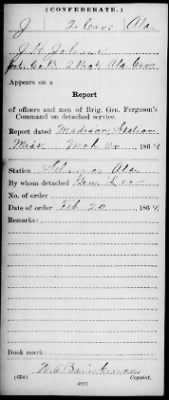 (CONFEDERATE.)
J 2 Cav. Ala
J. H.
2 Ala Cav
Appears on a
Report
of officers and men of Brig. Gen. Ferguson's
Command on detached service.
Report dated Madison Station
Miss Mch 20 1864
Station Selma Ala
By whom detached Gen Lee
No. of order
Date of order Feb 20 1864
Remarks:
Book mark:
(654) Copyist.